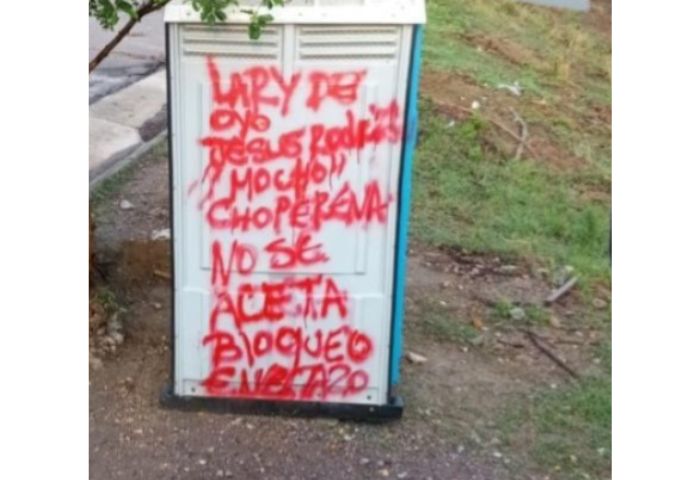 LARY DE
OYO
JESUS RODRIGZ
"MOCHO"
CHOPERENA
NO SE
ACETA
BLOQUEO